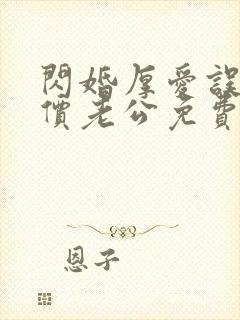 閃婚厚愛誤
價老公免費
恩子